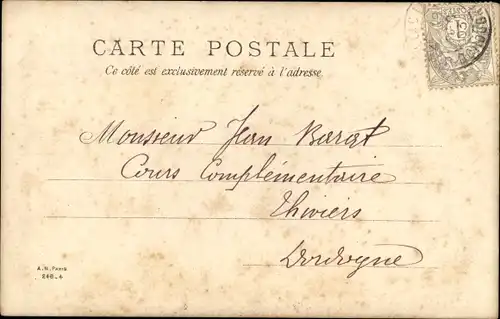 CARTE POSTALE
Ce côté est exclusivement réservé à l'adresse
Monsieur Jean Barat
Cours Complémentaire
Thiviers
Dordogne
A.N. Paris
248_4